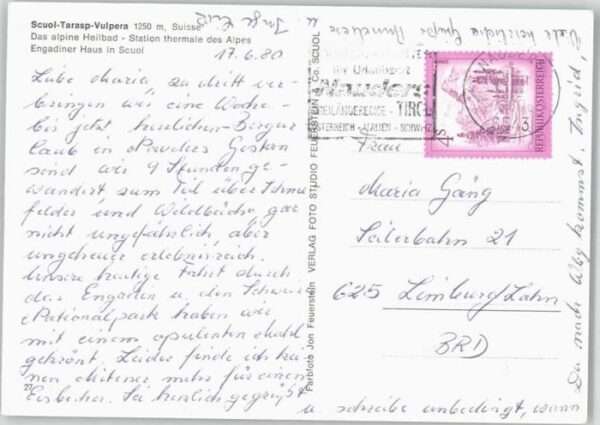 Scuol-Tarasp-Vulpera 1250 m, Suisse
Das alpine Heilbad - Station thermale des Alpes
Engadiner Haus in Scuol
17.6.80
Liebe Maria zu dritt ver-
bringen wir eine Woche
bis jetzt herrlichen Bergur
laub in Nauders Gestern
sind wir 9 Stunden ge-
wandert zum Teil über Schnee
felder und Wildbäche gar
nicht ungefährlich, aber
ungeheuer erlebnisreich.
Unsere heutige Fahrt durch
das Engadin u. den Schweizer
Nationalpark haben wir
mit einem opulenten Mahl
gekrönt. Leider finde ich kei-
nen mehr für einen
Eisbecher. Sei herzlich gegrüßt
u. schreibe unbedingt, wann
Du nach kommst. Ingrid,
herzliche Grüße
u. Inge
Farbfoto Jon Feuerstein VERLAG FOTO STUDIO FEUERSTEIN & Co. SCUOL
Nauders
TIROL
ÖSTERREICH - ITALIEN - SCHWEIZ
NAUDERS
S 4
REPUBLIK ÖSTERREICH
Frau
Maria Gäng
Seilerbahn 21
625 Limburg/Lahn
BRD